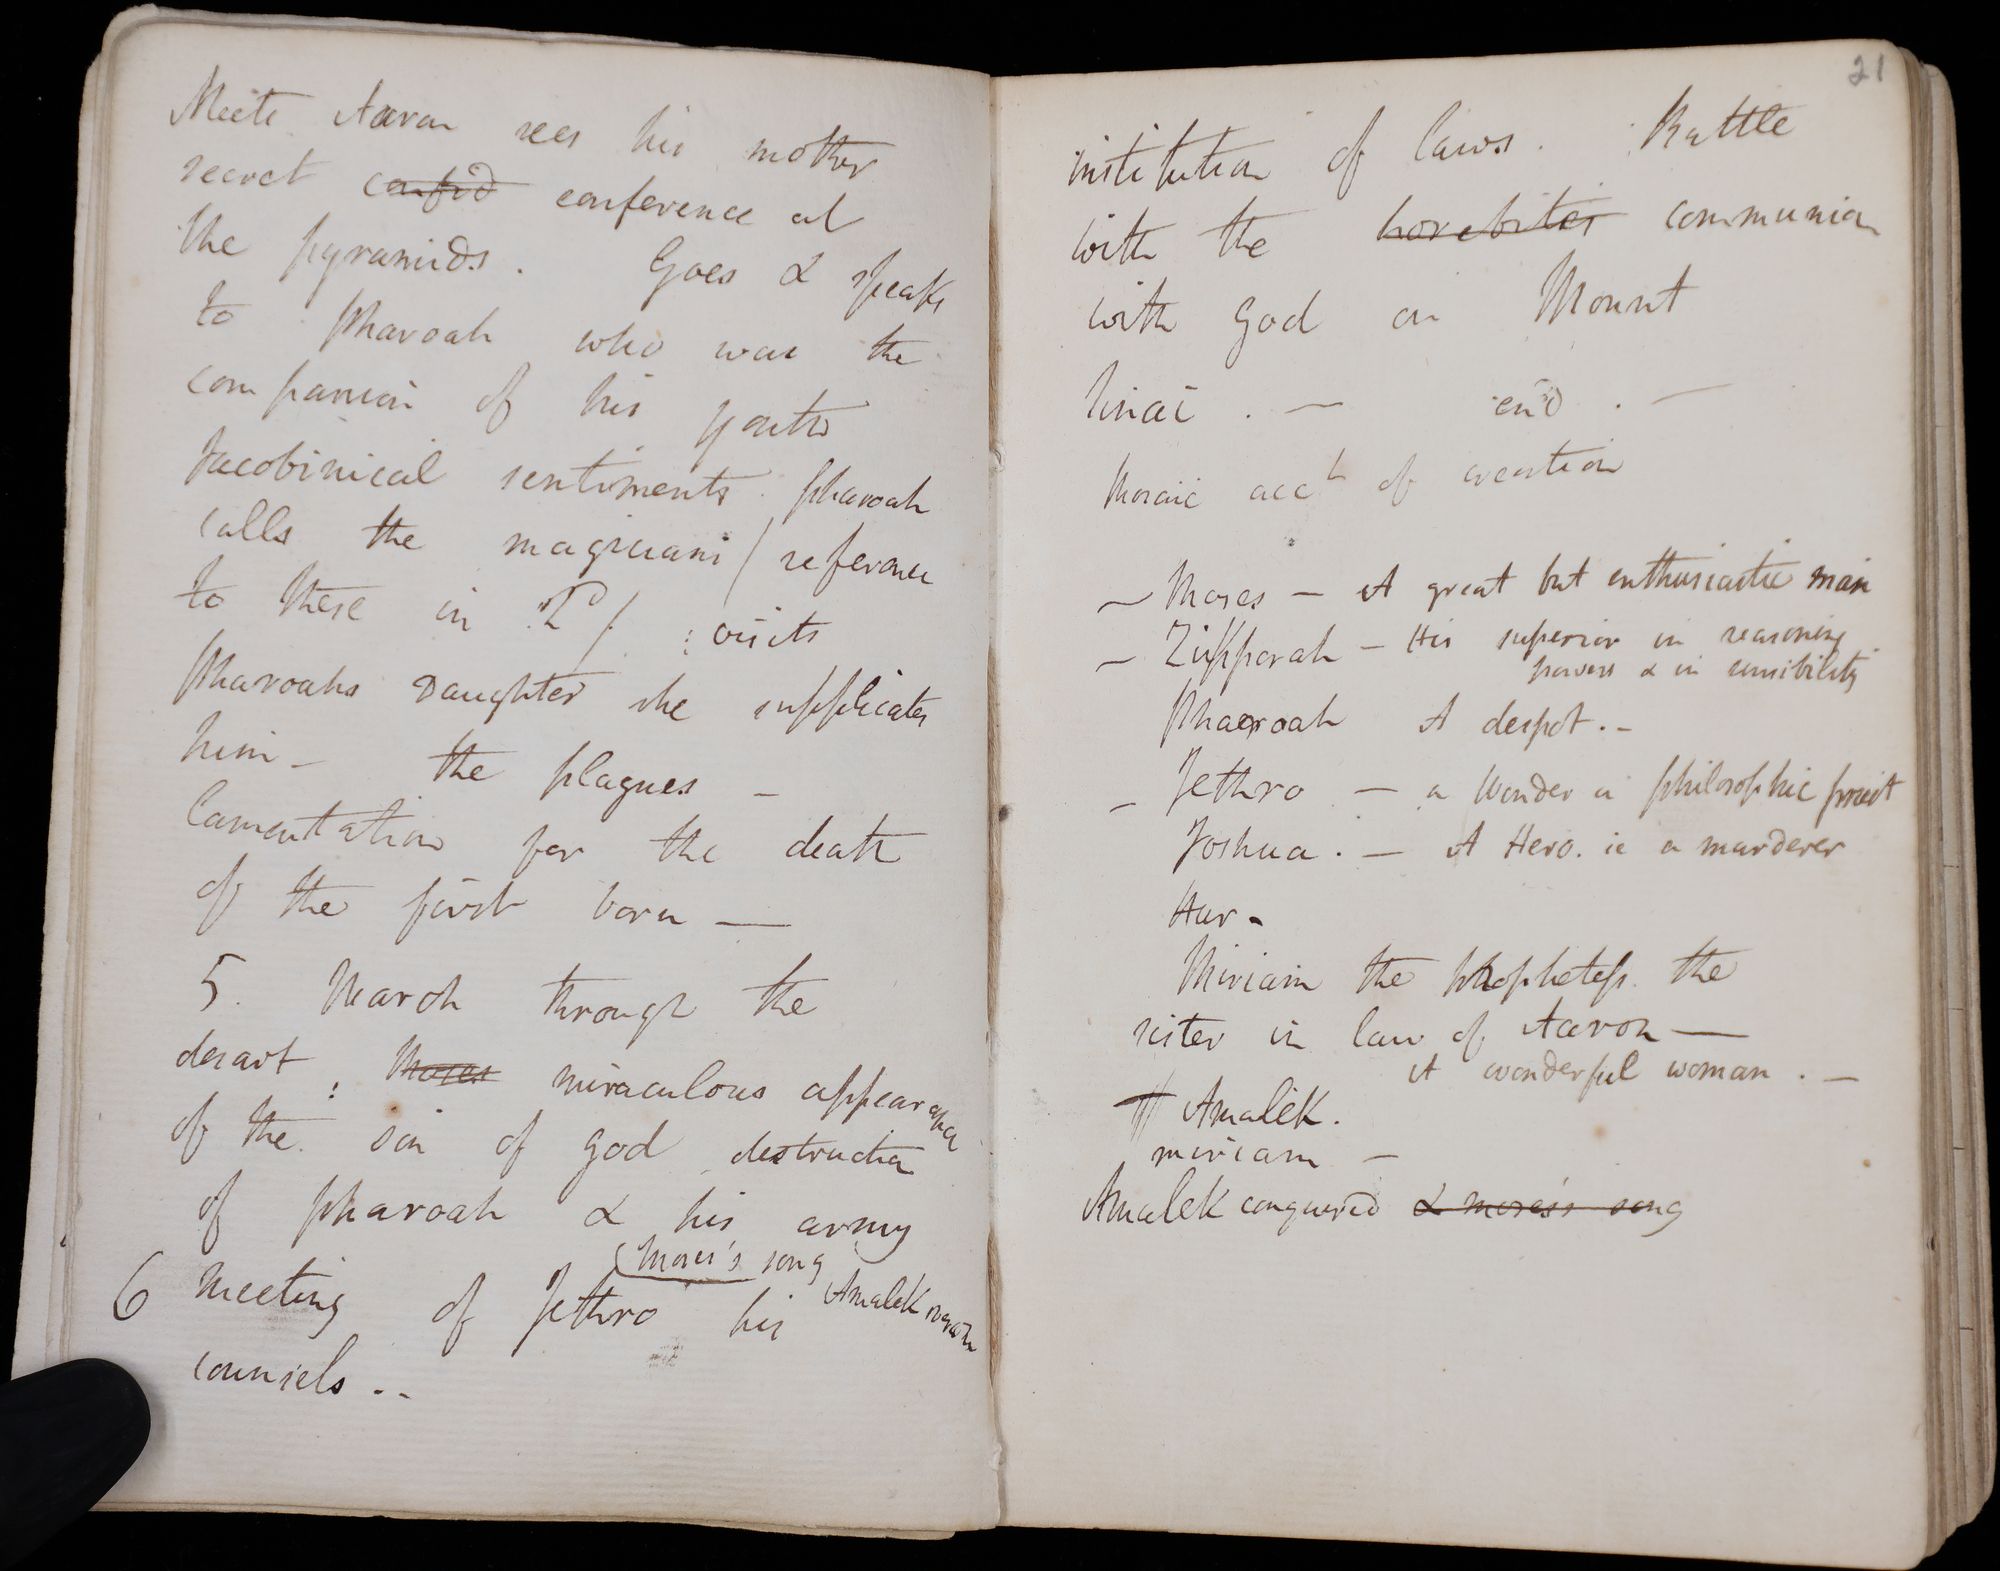 Meets Aaron sees his mother
secret confid conference at
the pyramids. Goes & speaks
to Pharoah who was the
companion of his youth
Jacobinical sentiments. Pharoah
calls the magicians / reference
to these in /. : visits
Pharoahs Daughter she supplicates
him – the plagues –
lamentation for the death
of the first born —
5. March through the
desart : Moses miraculous appearance
of the son of God destruction
of Pharoah & his army
(Moses's song
6 meeting of Jethro his Amalek
counsels . .
21
institution of laws. Battle
with the horebites communion
with God on Mount
Sinai . – end . –
Mosaic acct of creation
– Moses – A great but enthusiastic man
– Zipporah – His superior in reasoning
powers & in sensibility
Pharoah A despot. –
– Jethro – a wonder a philosophic priest
Joshua. – A Hero. ie a murderer
Hur –
Miriam the prophetess. the
sister in law of Aaron —
A wonderful woman . –
Amalek.
miriam –
Amalek conquered & moses's song